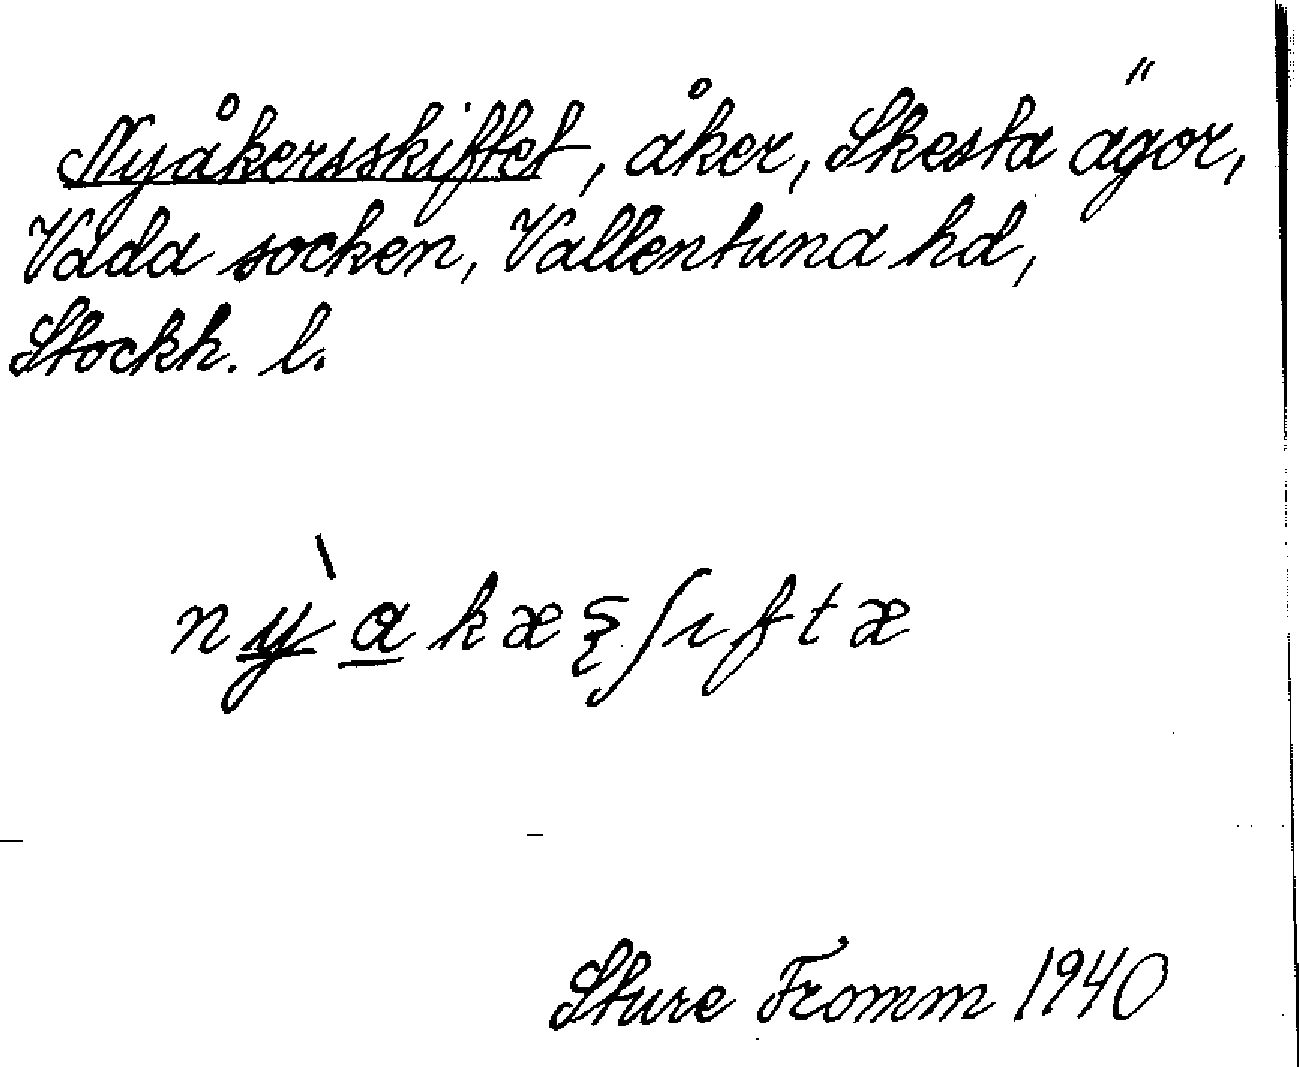 Nyåkersskiftet, åker, Skesta ägor,
Vada socken, Vallentuna hd,
Stockh. l.
nỳ̱a̱kæξʃıftæ
Sture Fromm 1940